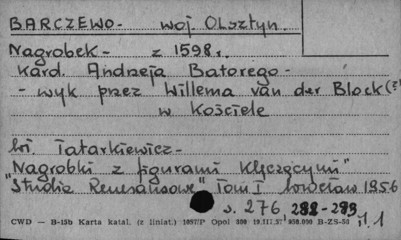 BARCZEWO - woj. Olsztyn.
Nagrobek - z 1598 r.
Kard. Andrzeja Batorego -
- wyk przez Willema van der Block (?)
w Kościele
Tatarkiewicz -
"Nagrobki z figurami Klęczącymi"
"Studia Renesansowe" Tom I Wrocław 1956
s. 276 282-293
CWD — B-15b Karta katal. (z liniat.) Opol B-ZS-5